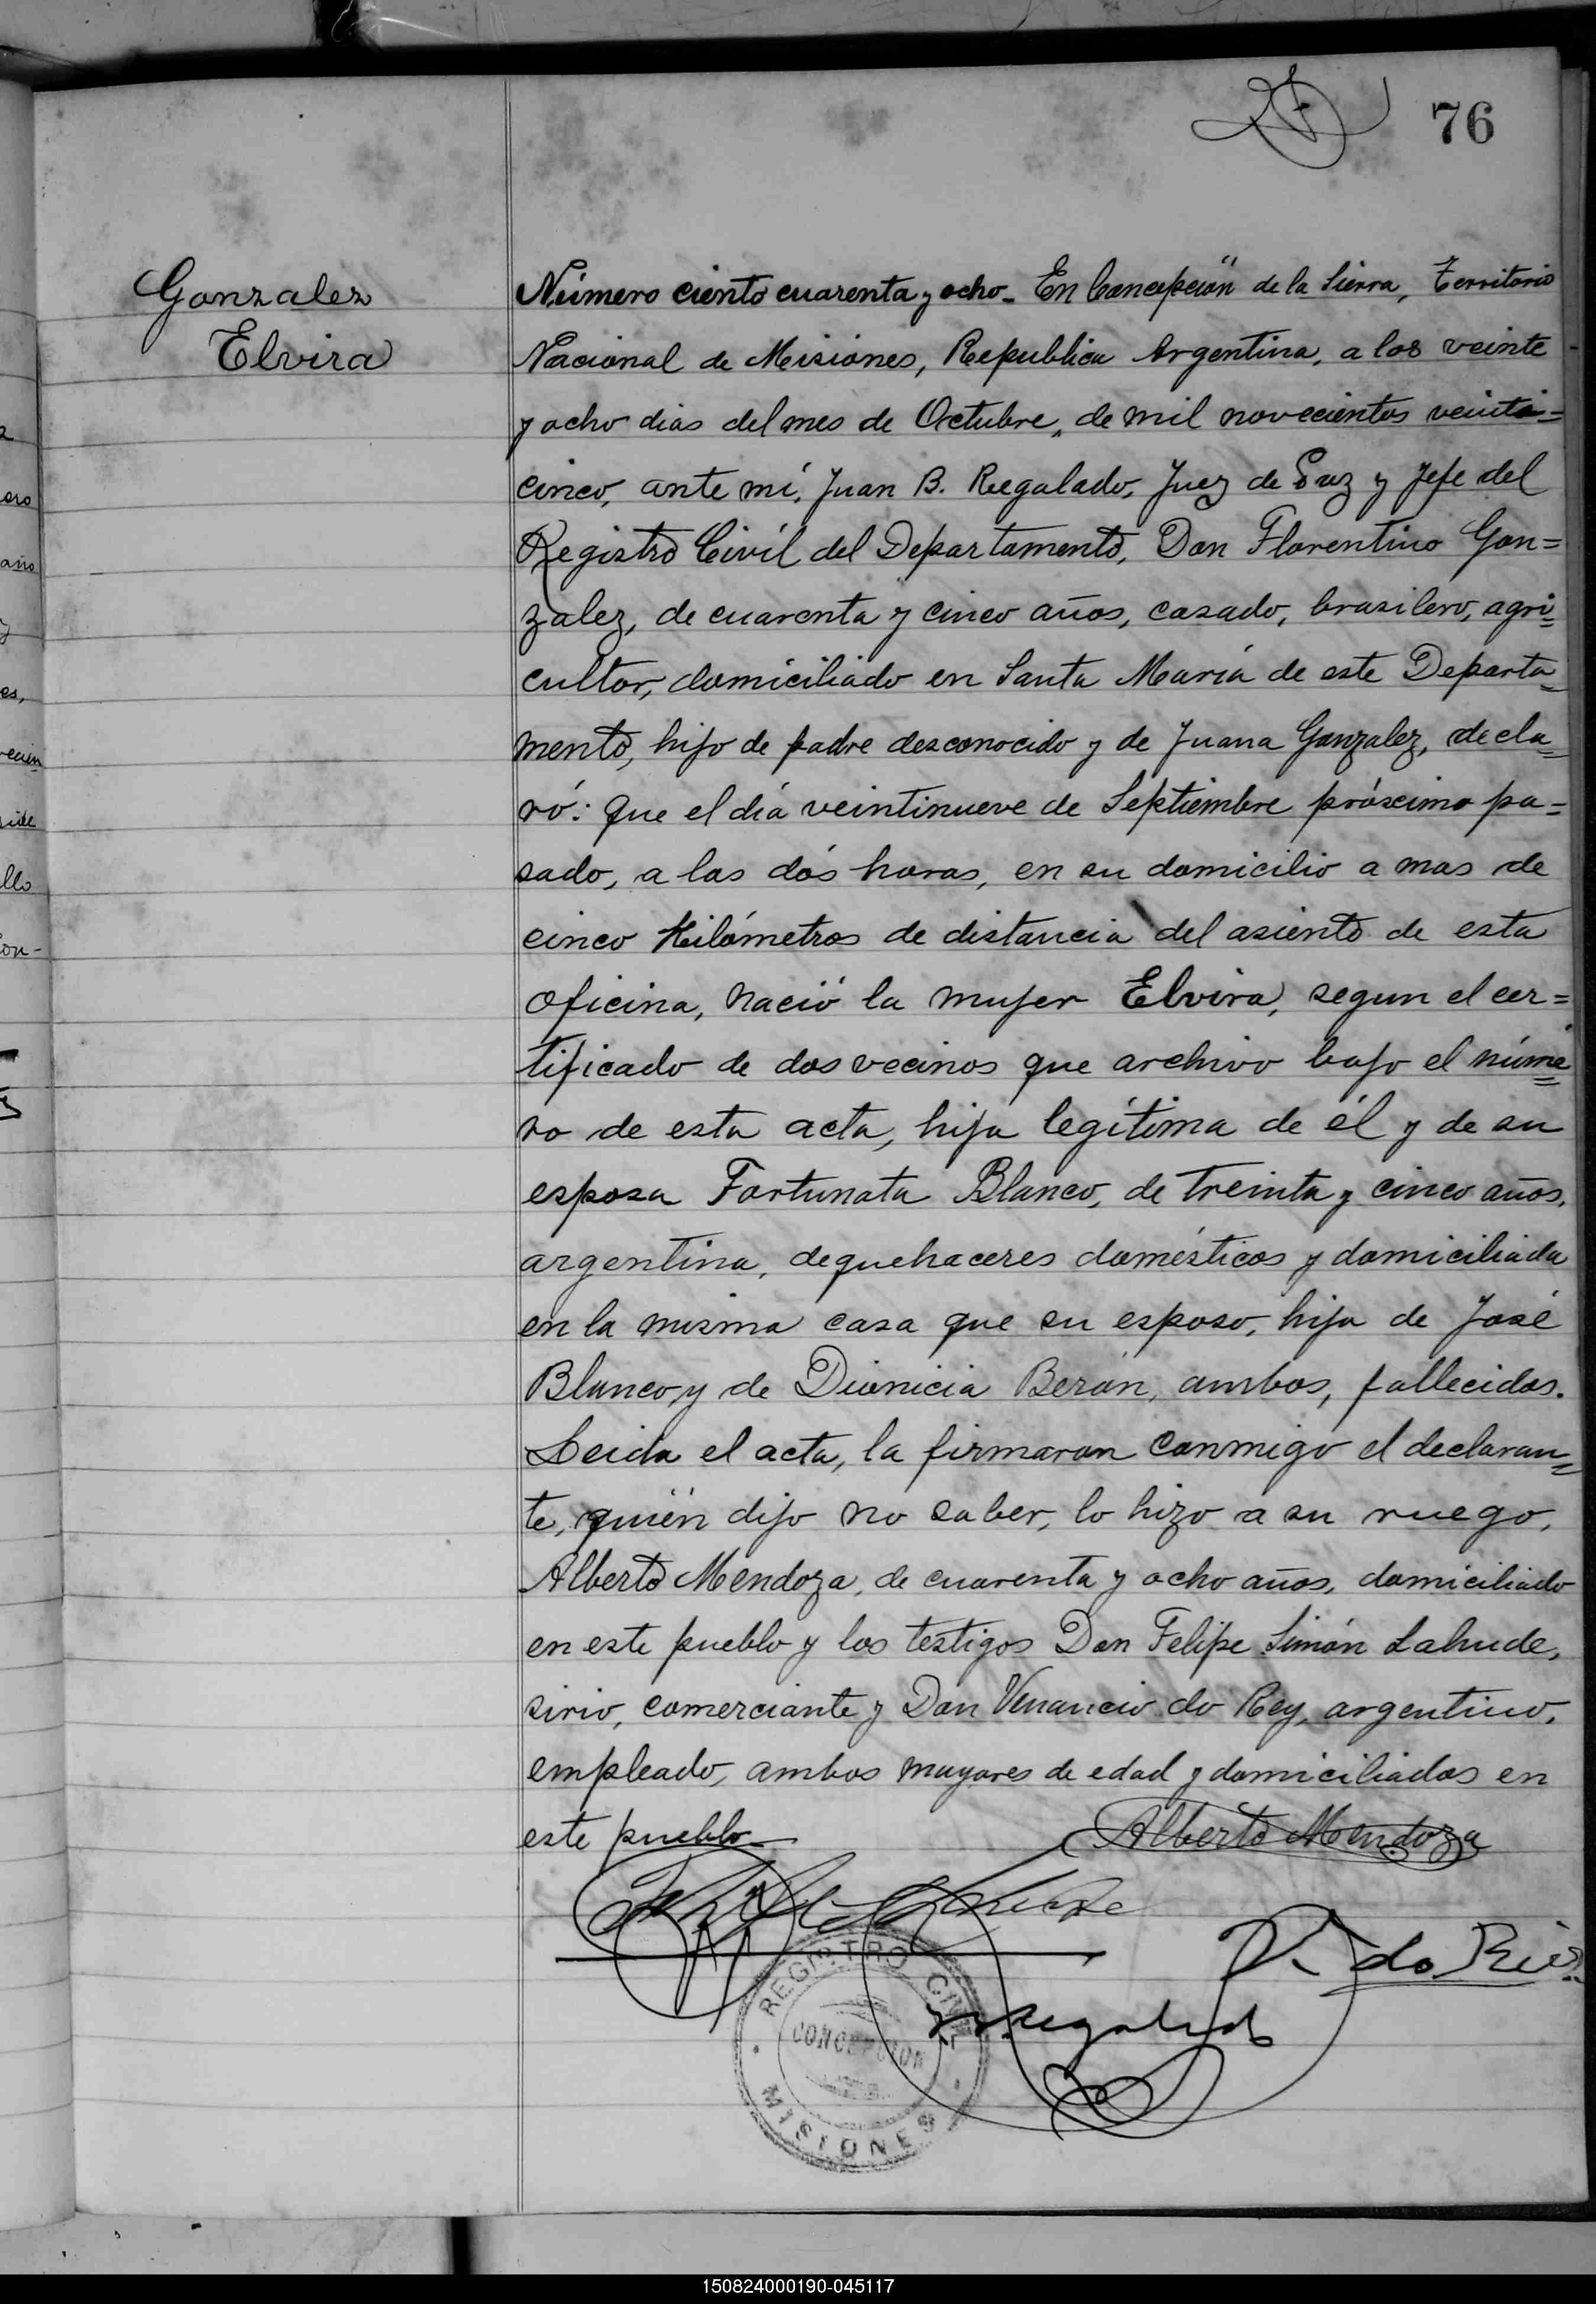 76
Gonzalez
Elvira
Número ciento cuarenta y ocho_ En Concepción de la Sierra, Territorio
Nacional de Misiones, Republica Argentina, a los veinte
y ocho dias del mes de Octubre, de mil novecientos veinti=
cinco, ante mí, Juan B. Regalado, Juez de Paz y Jefe del
Registro Civíl del Departamento, Don Florentino Gon=
zalez, de cuarenta y cinco años, casado, brasilero, agri=
cultor, domiciliado en Santa María de este Departa=
mento, hijo de padre desconocido y de Juana Gonzalez, decla=
ró: que el día veintinueve de Septiembre próximo pa=
sado, a las dós horas, en su domicilio a mas de
cinco Kilómetros de distancia del asiento de esta
oficina, nació la mujer Elvira, segun el cer=
tificado de dos vecinos que archivo bajo el núme=
ro de esta acta, hija legítima de él y de su
esposa Fortunata Blanco, de treinta y cinco años,
argentina, de quehaceres domésticos y domiciliada
en la misma casa que su esposo, hija de José
Blanco, y de Dionicia Berón, ambos, fallecidos.
Leida el acta, la firmaron conmigo el declaran=
te, quién dijo no saber, lo hizo a su ruego,
Alberto Mendoza, de cuarenta y ocho años, domiciliado
en este pueblo y los testigos Don Felipe Simón Lahude,
sirio, comerciante y Don Venancio do Rey, argentino,
empleado, ambos mayores de edad y domiciliados en
este pueblo_
Alberto Mendoza
V. do Rey
Regalado
REGISTRO CIVIL
CONCEPCION
MISIONES
150824000190-045117